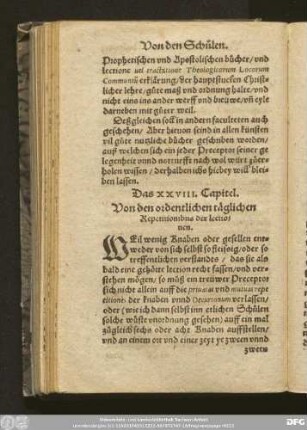 Von den Schülen.
Prophetischen vnd Apostolischen bücher/ vnd
lectione uel tractatione Theologicorum Locorum
Communiũ erklärung/ der hauptstucken Christ-
licher lehre/ gůte maß vnd ordnung halte/ vnd
nicht eins ins ander werff vnd
darneben mit gůter weil.
Deßgleichen soll in andern faculteten auch
geschehen/ Aber hieuon seind in allen künsten
vil gůte nutzliche bücher geschriben worden/
auß welchen sich ein jeder Preceptor seiner ge
legenheit vnnd notturfft nach wol würt zůer-
holen wissen/ derhalben ichs hiebey will blei-
ben lassen.
Das XXVIII. Capitel.
Von den ordentlichen täglichen
Repetitionibus der lectio
nen.
WEil wenig Knaben oder gesellen ent-
weder von sich selbst so fleissig/ oder so
treffenlichen verstandes/ das sie als
bald eine gehörte lection recht fassen/ vnd ver-
stehen mögen/ so můß ein trewer Preceptor
sich nicht allein auff die priuatas vnd mutuas repe
titiones der knaben vnnd Decurionum verlassen/
oder (wie ich dann selbst inn etlichen Schůlen
solche wüste vnordnung gesehen) auff ein mal
zůgleich sechs oder acht Knaben auffstellen/
vnd an einem ort vnd eines zeyt je zween vnnd
zween